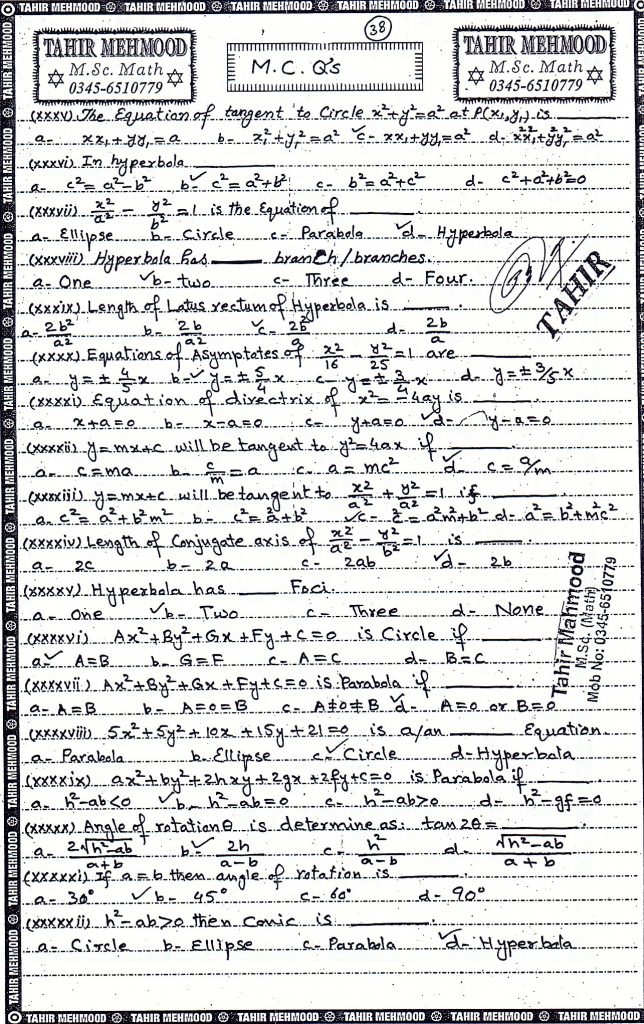 TAHIR MEHMOOD TAHIR MEHMOOD TAHIR MEHMOOD TAHIR MEHMOOD TAHIR MEHMOOD TAHIR MEHMOOD
38
TAHIR MEHMOOD
M.Sc. Math
0345-6510779
M.C.Q's
TAHIR MEHMOOD
M.Sc. Math
0345-6510779
(xxxv) The Equation of tangent to Circle x²+y²=a² at P(x₁,y₁) is
a- xx₁+yy₁=a b- x₁²+y₁²=a² ✓c- xx₁+yy₁=a² d- x²x₁²+y²y₁²=a²
(xxxvi) In hyperbola
a- c²=a²-b² b-✓ c²=a²+b² c- b²=a²+c² d- c²+a²+b²=0
(xxxvii) x²/a² - y²/b² = 1 is the Equation of
a- Ellipse b- Circle c- Parabola ✓d- Hyperbola
(xxxviii) Hyperbola has branch/branches.
a- One ✓b- two c- Three d- Four.
TAHIR
(xxxix) Length of Latus rectum of Hyperbola is
a- 2b²/a² b- 2b/a² ✓c- 2b²/a d- 2b/a
(xxxx) Equations of Asymptotes of x²/16 - y²/25 = 1 are
a- y=±4/5 x b-✓ y=±5/4 x c- y=±3/4 x d- y=±3/5 x
(xxxxi) Equation of directrix of x²=-4ay is
a- x+a=0 b- x-a=0 c- y+a=0 ✓d- y-a=0
(xxxxii) y=mx+c will be tangent to y²=4ax if
a- c=ma b- c/m=a c- a=mc² ✓d- c=a/m
(xxxxiii) y=mx+c will be tangent to x²/a² + y²/a² = 1 if
a- c²=a²+b²m² b- c²=a²+b² ✓c- c²=a²m²+b² d- a²=b²+m²c²
(xxxxiv) Length of Conjugate axis of x²/a² - y²/b² = 1 is
a- 2c b- 2a c- 2ab ✓d- 2b
(xxxxv) Hyperbola has Foci.
a- One ✓b- Two c- Three d- None
Tahir Mahmood
M.Sc. (Math)
Mob No: 0345-6510779
(xxxxvi) Ax²+By²+Gx+Fy+C=0 is Circle if
a-✓ A=B b- G=F c- A=C d- B=C
(xxxxvii) Ax²+By²+Gx+Fy+C=0 is Parabola if
a- A=B b- A=0=B c- A≠0≠B ✓d- A=0 or B=0
(xxxxviii) 5x²+5y²+10x+15y+21=0 is a/an Equation
a- Parabola b- Ellipse c-✓ Circle d- Hyperbola
(xxxxix) ax²+by²+2hxy+2gx+2fy+c=0 is Parabola if
a- h²-ab<0 ✓b- h²-ab=0 c- h²-ab>0 d- h²-gf=0
(xxxxx) Angle of rotation θ is determine as: tan 2θ=
a- 2√h²-ab/a+b b-✓ 2h/a-b c- h²/a-b d- √h²-ab/a+b
(xxxxxi) If a=b then angle of rotation is
a- 30° ✓b- 45° c- 60° d- 90°
(xxxxxii) h²-ab>0 then Conic is
a- Circle b- Ellipse c- Parabola ✓d- Hyperbola
TAHIR MEHMOOD TAHIR MEHMOOD TAHIR MEHMOOD TAHIR MEHMOOD TAHIR MEHMOOD TAHIR MEHMOOD